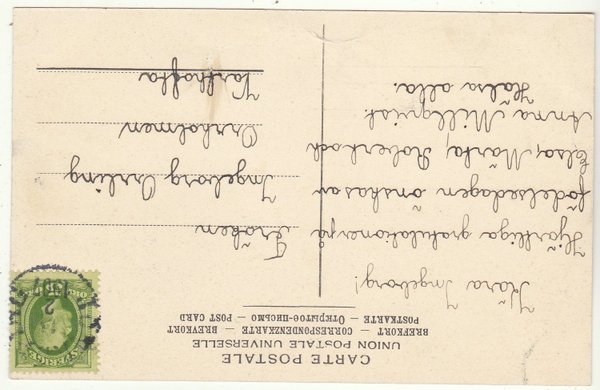 CARTE POSTALE
UNION POSTALE UNIVERSELLE
BREFKORT — CORRESPONDENZKARTE — BREVKORT
POSTKARTE — Открытое-письмо — POST CARD
Kära Ingeborg!
Hjärtliga gratulationer på
födelsedagen önskas av
Elsa, Märta, Robert och
Anna Millqvist.
Hälsa alla.
Fröken
Ingeborg Orrling
Orrholmen
Vartofta
SVERIGE